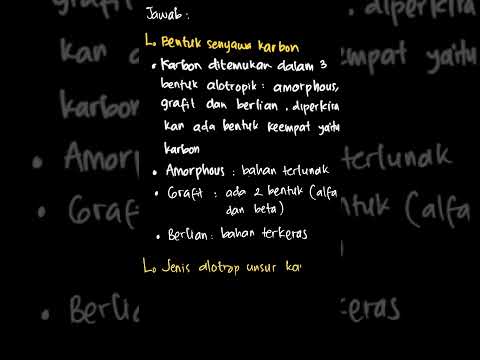 Jawab :
L. Bentuk senyawa karbon
• Karbon ditemukan dalam 3
bentuk alotropik : amorphous,
grafit dan berlian . diperkira
kan ada bentuk keempat yaitu
karbon
• Amorphous : bahan terlunak
• Grafit : ada 2 bentuk (alfa
dan beta)
• Berlian : bahan terkeras
L. Jenis alotrop unsur ka